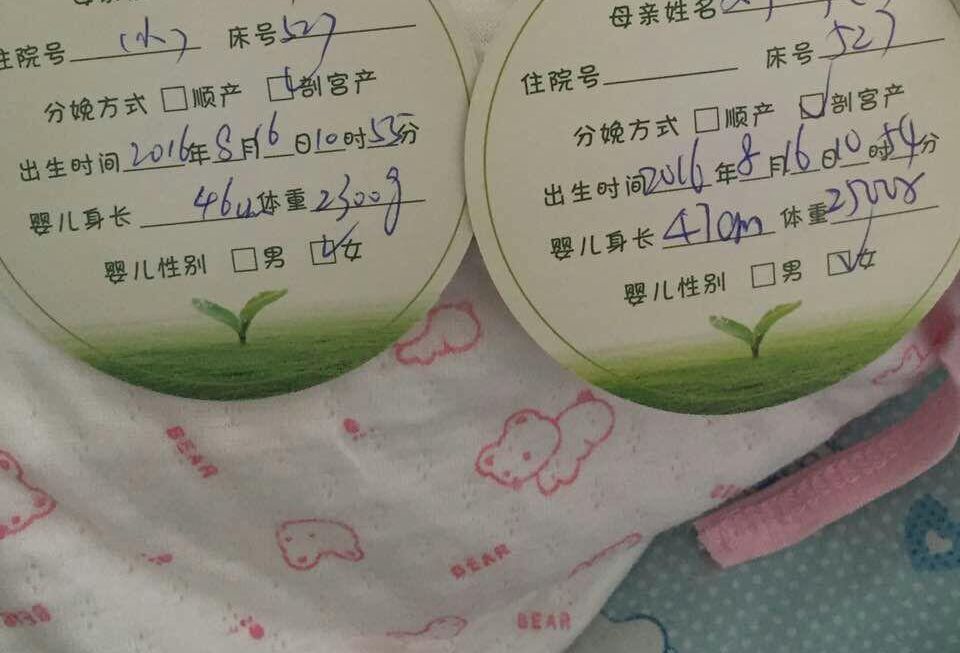 住院号 (小) 床号 527
分娩方式 □顺产 ☑剖宫产
出生时间 2016年8月16日10时55分
婴儿身长 46cm 体重 2300g
婴儿性别 □男 ☑女
母亲姓名
住院号 床号 527
分娩方式 □顺产 ☑剖宫产
出生时间 2016年8月16日10时54分
婴儿身长 47cm 体重 2500g
婴儿性别 □男 ☑女
BEAR
BEAR
BEAR
BEAR